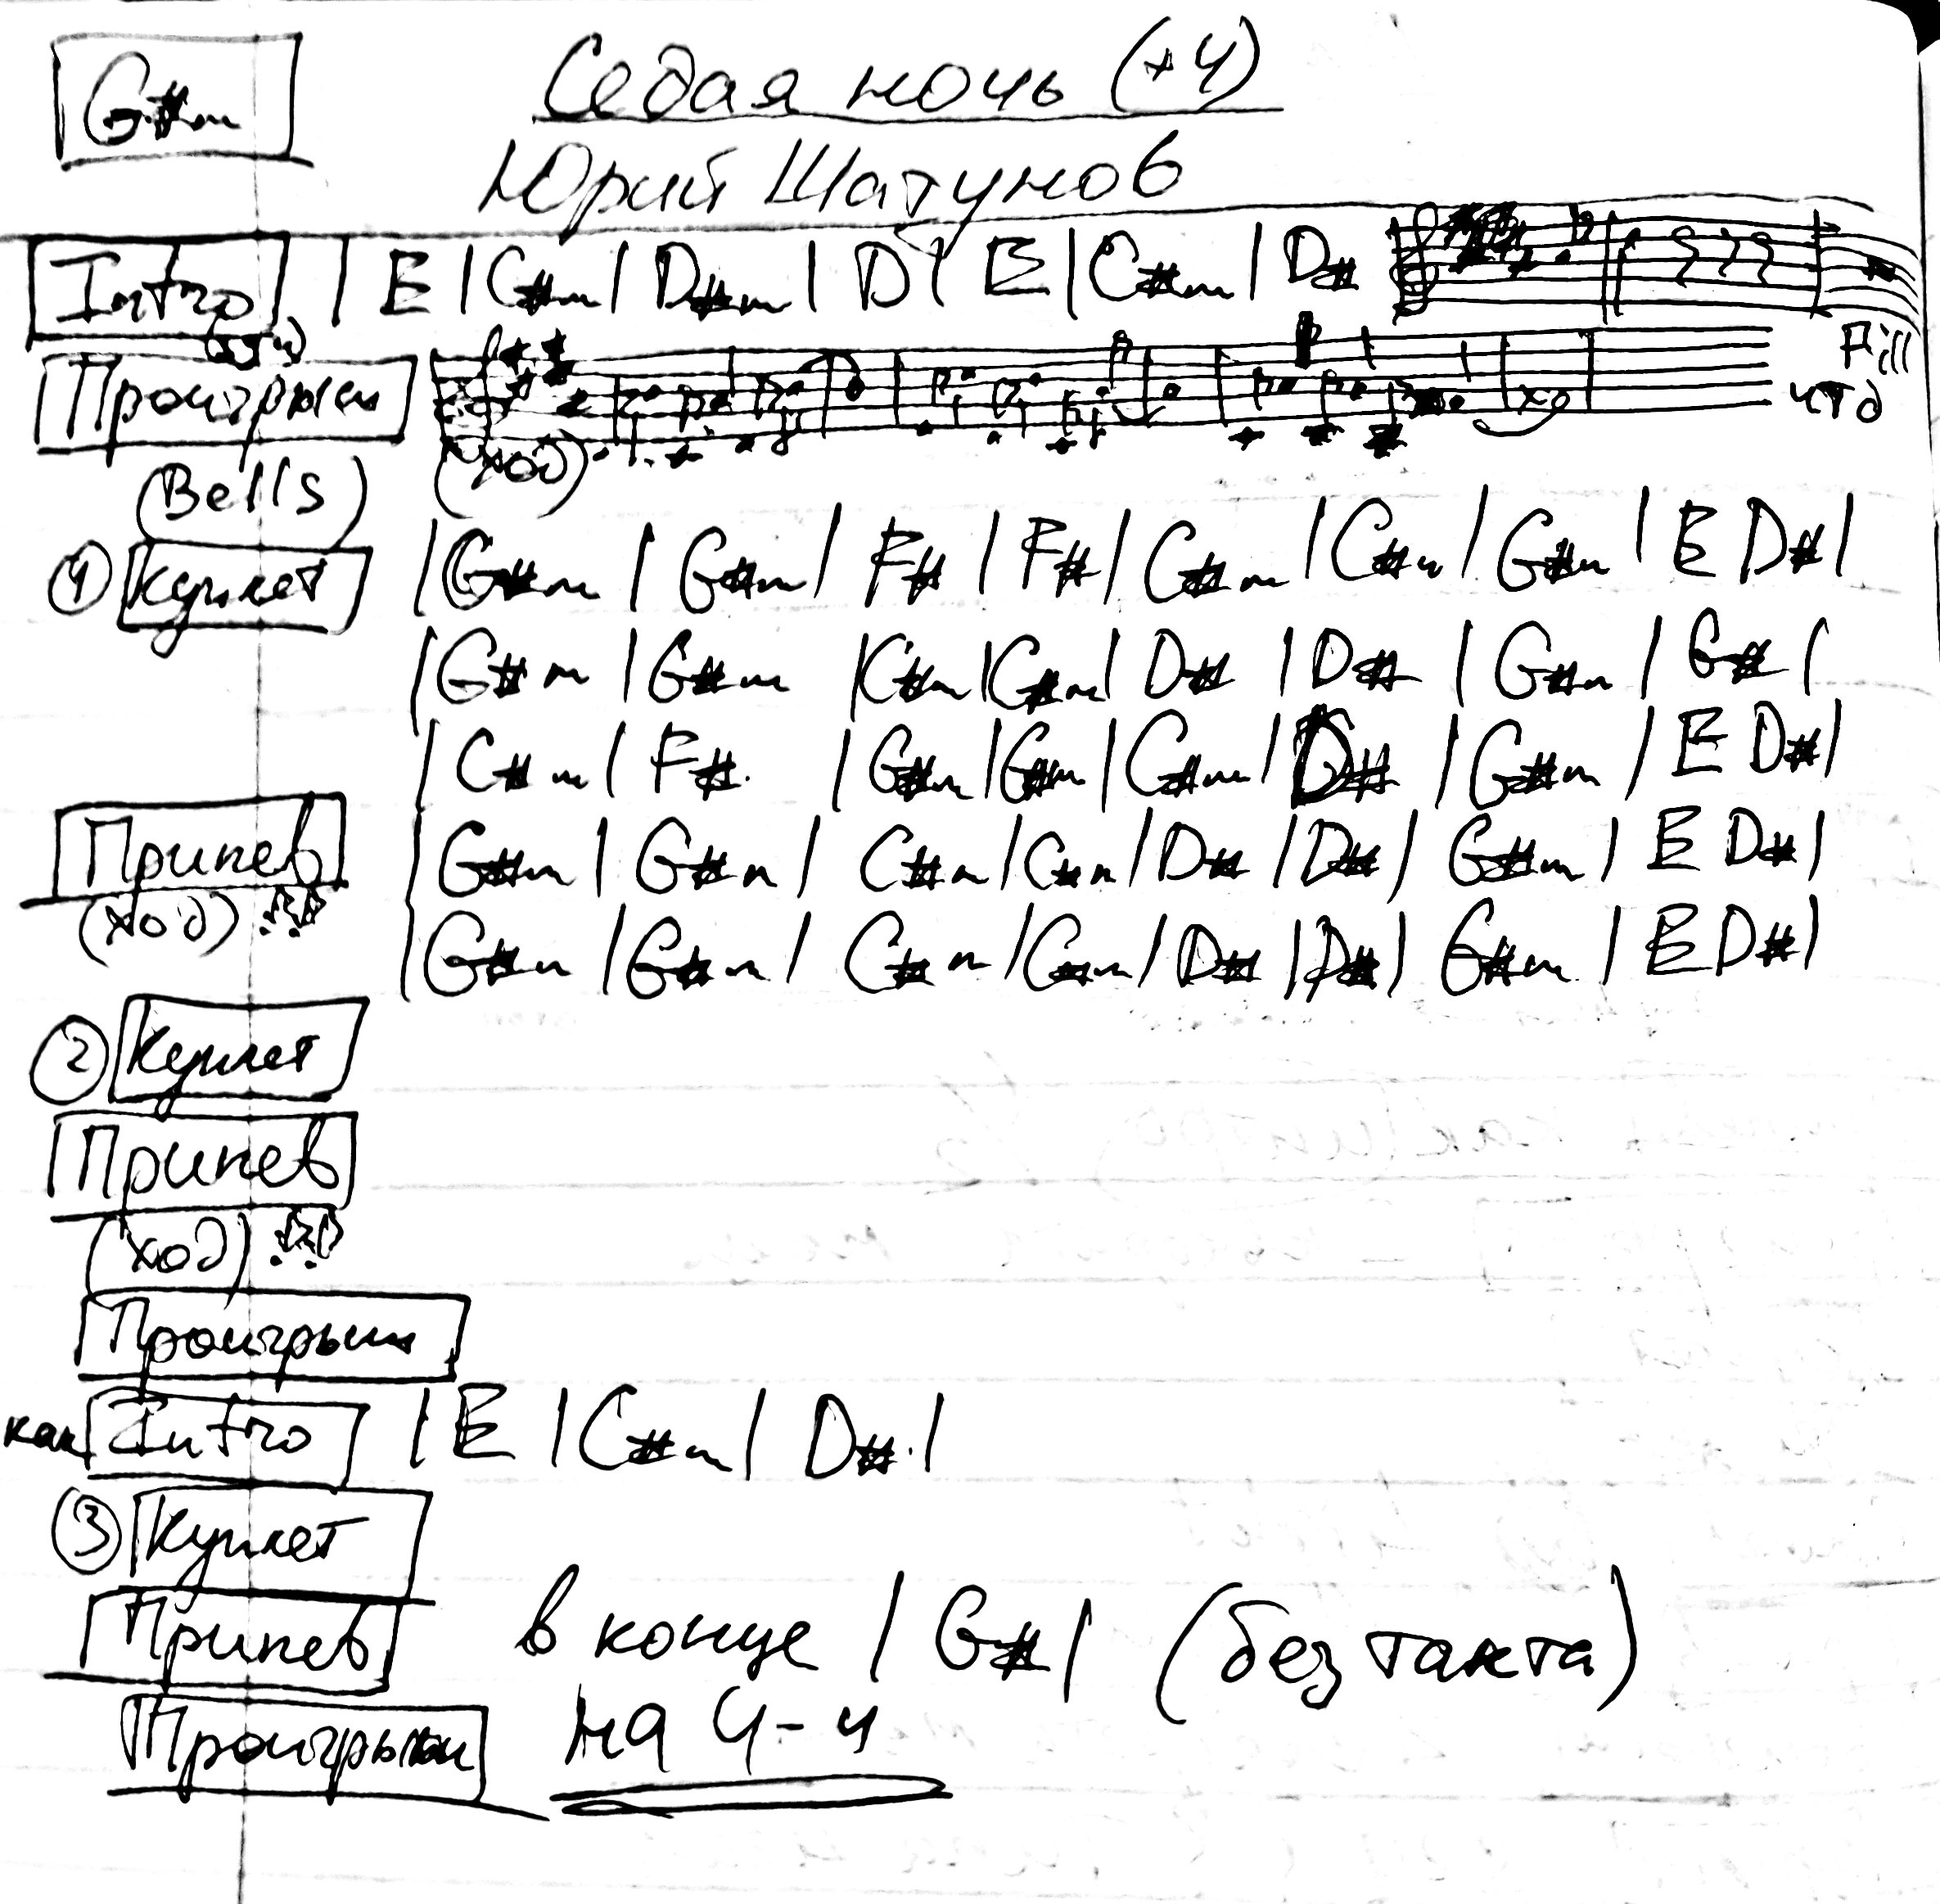 G#m
Седая ночь (+4)
Юрий Шатунов
Intro | E | C#m | D#m | D | E | C#m | D#
Fill
Проигрыш
(Bells) (ход)
① Куплет | G#m | G#m | F# | F# | C#m | C#m | G#m | E D# |
| G#m | G#m | C#m | C#m | D# | D# | G#m | G# |
| C#m | F# | G#m | G#m | C#m | D# | G#m | E D# |
Припев | G#m | G#m | C#m | C#m | D# | D# | G#m | E D# |
(ход) | G#m | G#m | C#m | C#m | D# | D# | G#m | E D# |
② Куплет
Припев
(ход)
Проигрыш
как Intro | E | C#m | D# |
③ Куплет
Припев в конце | G# | (без такта)
Проигрыш на 4-и